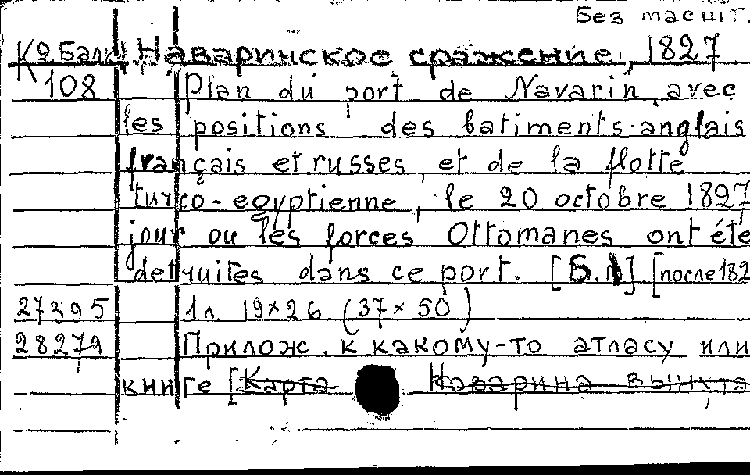 Без масшт.
Ко. Балк. Наваринское сражение, 1827
К 108 Plan du port de Navarin avec
les positions des batiments anglais
français et russes et de la flotte
turco-egyptienne, le 20 octobre 1827
jour ou les forces Ottomanes ont éte
detruites dans ce port. [Б.м] [после 182
27395 1л. 19×26 (37×50)
28279 Прилож. к какому-то атласу или
книге [Карта Наварина вынута